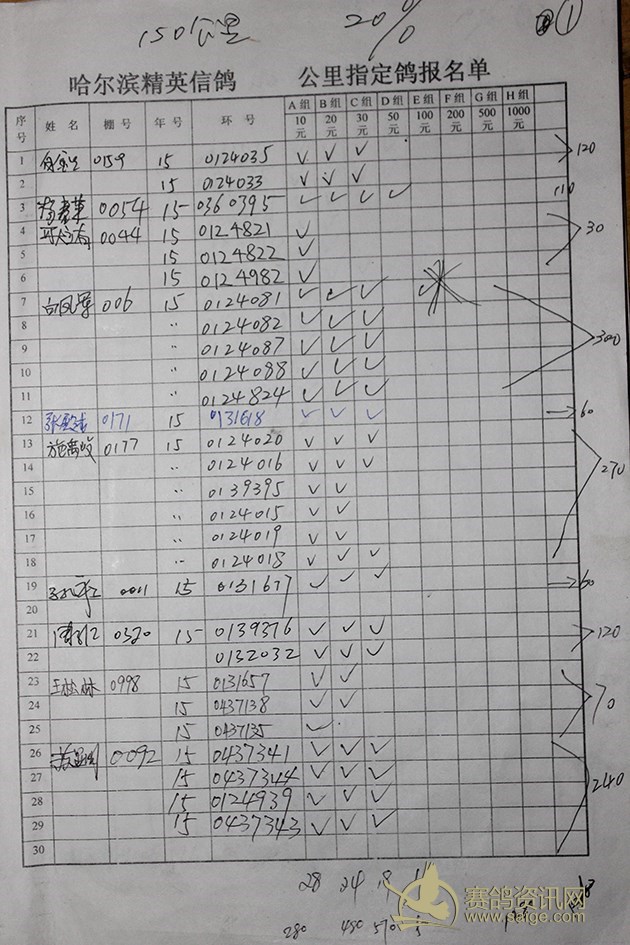 150公里 20% ①
哈尔滨精英信鸽 公里指定鸽报名单
序号 姓 名 棚 号 年 号 环 号 A 组 10元 B 组 20元 C 组 30元 D 组 50元 E 组 100元 F 组 200元 G 组 500元 H 组 1000元
1 0159 15 0124035 √ √ √ 120
2 15 0124033 √ √ √
3 0054 15 0360395 √ √ √ √ 110
4 0044 15 0124821 √ 30
5 15 0124822 √
6 15 0124982 √
7 白凤军 006 15 0124081 √ √ √ 300
8 〃 0124082 √ √ √
9 〃 0124087 √ √ √
10 〃 0124088 √ √ √
11 〃 0124824 √ √ √
12 0171 15 0131618 √ √ √ 60
13 0177 15 0124020 √ √ √ 270
14 〃 0124016 √ √ √
15 〃 0139395 √ √
16 〃 0124015 √ √
17 〃 0124019 √ √
18 〃 0124018 √ √ √
19 0011 15 0131677 √ √ √ 60
20
21 0320 15 0139376 √ √ √ 120
22 0132032 √ √ √
23 王松林 0998 15 0131657 √ √ 70
24 15 0437138 √ √
25 15 0437135 √
26 0092 15 0437341 √ √ √ 240
27 15 0437344 √ √ √
28 15 0124939 √ √ √
29 15 0437343 √ √ √
30
28 24 19
280 480 570
赛鸽资讯网
www.saige.com